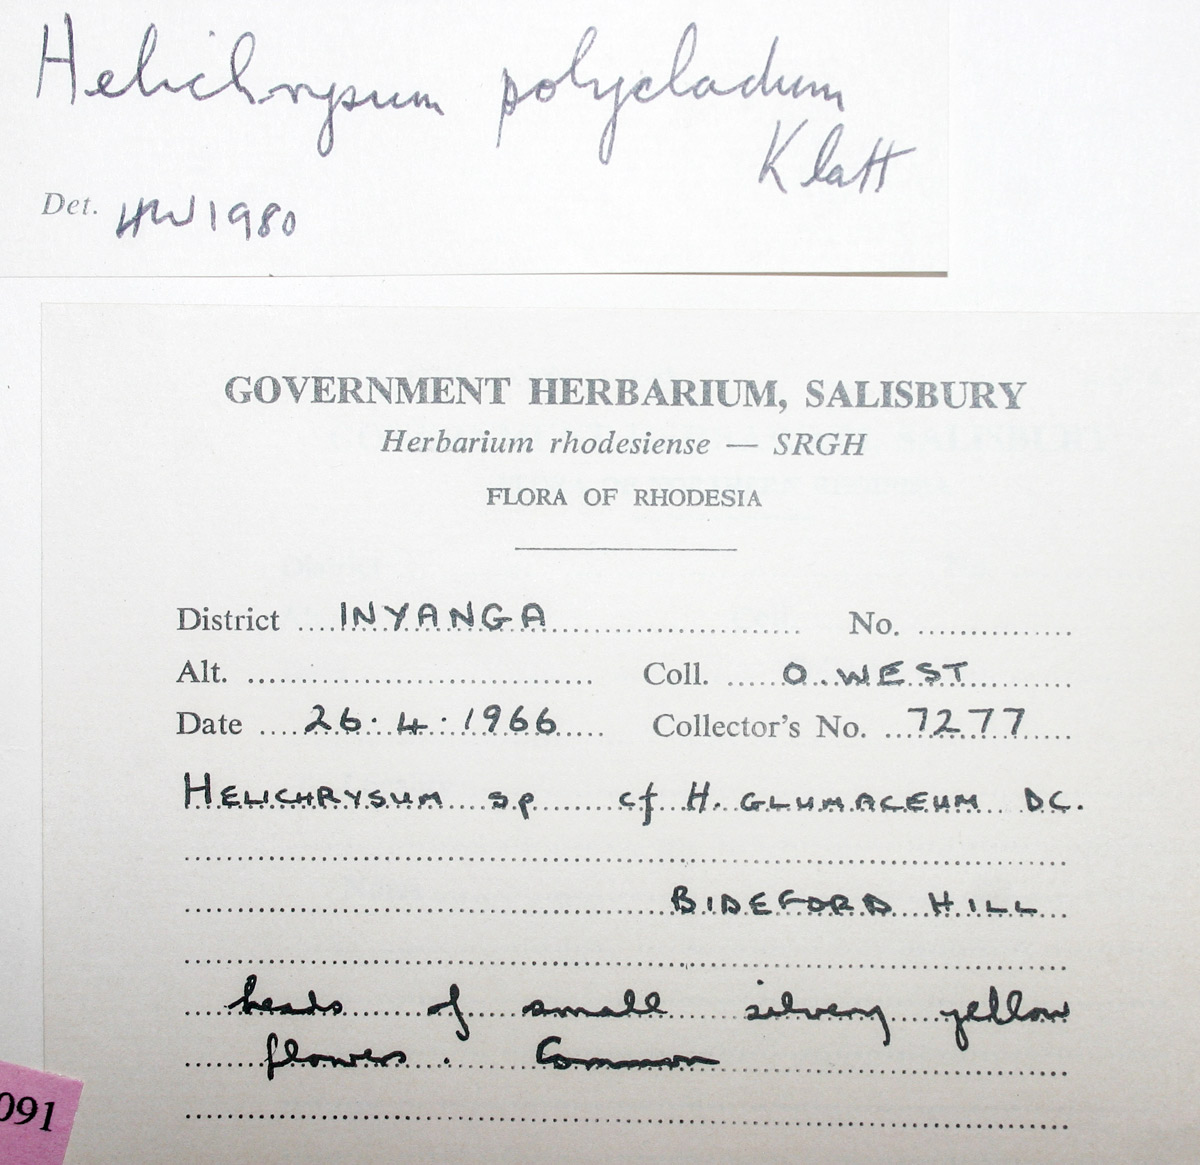 Helichrysum polycladum
Klatt
Det. HW 1980
GOVERNMENT HERBARIUM, SALISBURY
Herbarium rhodesiense — SRGH
FLORA OF RHODESIA
District INYANGA No.
Alt. Coll. O. WEST
Date 26.4.1966 Collector's No. 7277
HELICHRYSUM sp cf H. GLUMACEUM DC.
BIDEFORD HILL
heads of small silvery yellow
flowers. Common
091